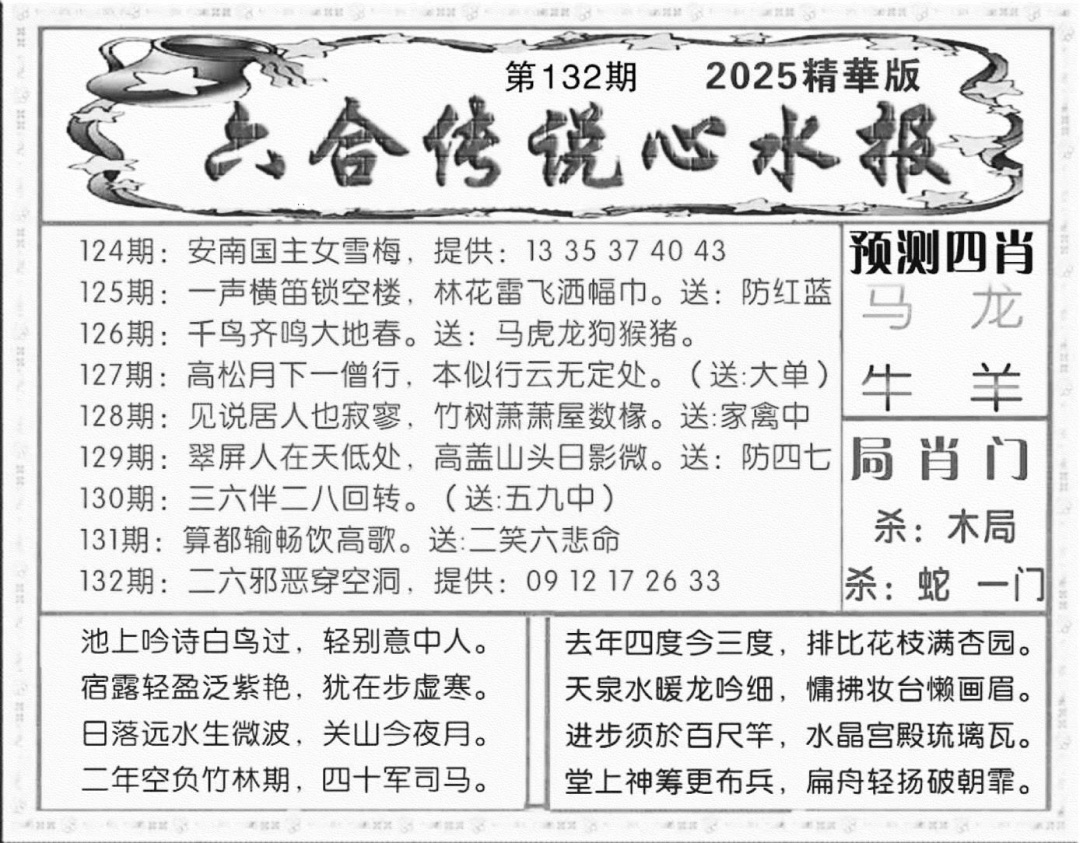 第132期 2025精華版
六合传说心水报
124期：安南国主女雪梅，提供：13 35 37 40 43
125期：一声横笛锁空楼，林花雷飞洒幅巾。送：防红蓝
126期：千鸟齐鸣大地春。送：马虎龙狗猴猪。
127期：高松月下一僧行，本似行云无定处。（送:大单）
128期：见说居人也寂寥，竹树萧萧屋数椽。送:家禽中
129期：翠屏人在天低处，高盖山头日影微。送：防四七
130期：三六伴二八回转。（送:五九中）
131期：算都输畅饮高歌。送:二笑六悲命
132期：二六邪恶穿空洞，提供：09 12 17 26 33
预测四肖
马 龙
牛 羊
局肖门
杀：木局
杀：蛇 一门
池上吟诗白鸟过，轻别意中人。
宿露轻盈泛紫艳，犹在步虚寒。
日落远水生微波，关山今夜月。
二年空负竹林期，四十军司马。
去年四度今三度，排比花枝满杏园。
天泉水暖龙吟细，慵拂妆台懒画眉。
进步须於百尺竿，水晶宫殿琉璃瓦。
堂上神筹更布兵，扁舟轻扬破朝霏。